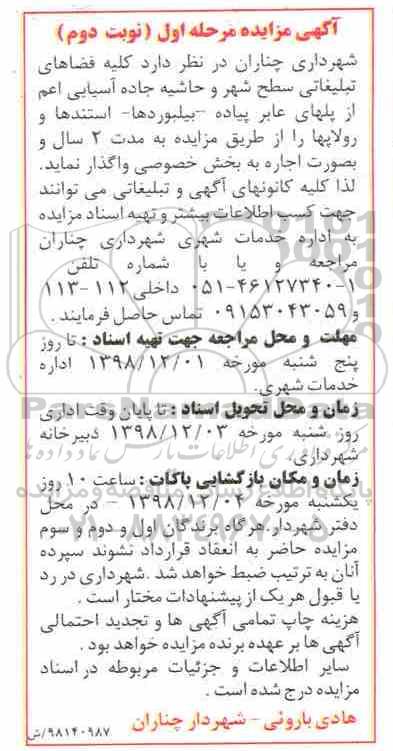 آگهی مزایده مرحله اول (نوبت دوم)
شهرداری چناران در نظر دارد کلیه فضاهای
تبلیغاتی سطح شهر و حاشیه جاده آسیایی اعم
از پلهای عابر پیاده -بیلبوردها- استندها و
رولاپها را از طریق مزایده به مدت ۲ سال و
بصورت اجاره به بخش خصوصی واگذار نماید.
لذا کلیه کانونهای آگهی و تبلیغاتی می توانند
جهت کسب اطلاعات بیشتر و تهیه اسناد مزایده
به اداره خدمات شهری شهرداری چناران
مراجعه و یا با شماره تلفن
۰۵۱-۴۶۱۲۷۳۴۰-۱ داخلی ۱۱۲ -۱۱۳
و ۰۹۱۵۳۰۴۳۰۵۹ تماس حاصل فرمایند .
مهلت و محل مراجعه جهت تهیه اسناد : تا روز
پنج شنبه مورخه ۱۳۹۸/۱۲/۰۱ اداره
خدمات شهری.
زمان و محل تحویل اسناد : تا پایان وقت اداری
روز شنبه مورخه ۱۳۹۸/۱۲/۰۳ دبیرخانه
شهرداری.
زمان و مکان بازگشایی پاکات : ساعت ۱۰ روز
یکشنبه مورخه ۱۳۹۸/۱۲/۰۴ - در محل
دفتر شهردار.هرگاه برندگان اول و دوم و سوم
مزایده حاضر به انعقاد قرارداد نشوند سپرده
آنان به ترتیب ضبط خواهد شد .شهرداری در رد
یا قبول هر یک از پیشنهادات مختار است .
هزینه چاپ تمامی آگهی ها و تجدید احتمالی
آگهی ها بر عهده برنده مزایده خواهد بود .
سایر اطلاعات و جزئیات مربوطه در اسناد
مزایده درج شده است .
هادی باروئی - شهردار چناران
۹۸۱۴۰۹۸۷/ش